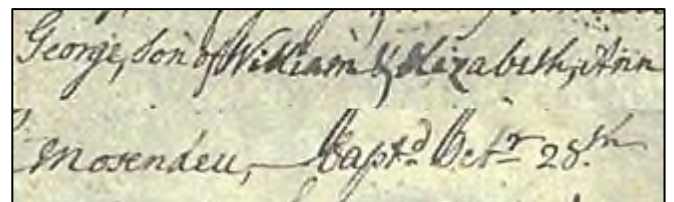 George, Son of William & Elizabeth, Ann
Mosendeu, Bapt.d Oct.r 28.th